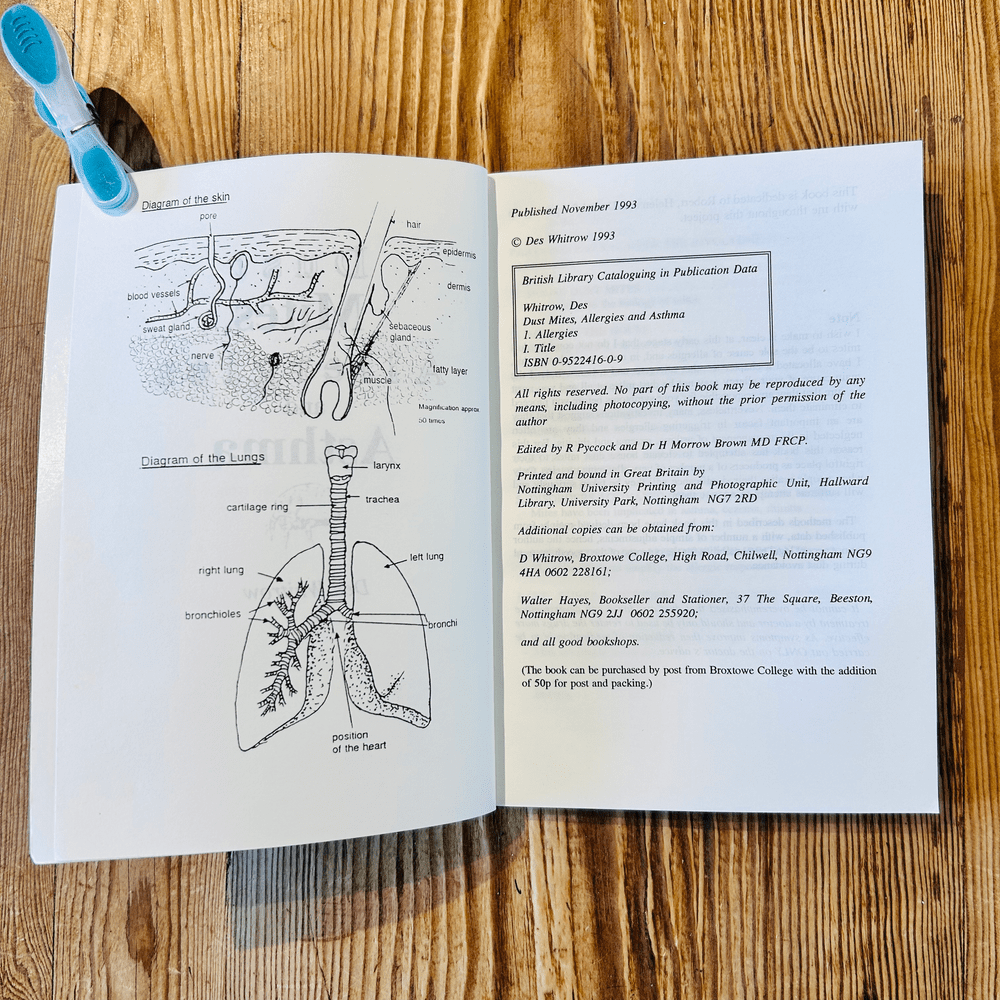 Diagram of the skin
pore
hair
epidermis
blood vessels
dermis
sweat gland
sebaceous
gland
nerve
fatty layer
muscle
Magnification approx
50 times
Diagram of the Lungs
larynx
trachea
cartilage ring
left lung
right lung
bronchioles
bronchi
position
of the heart
Published November 1993
© Des Whitrow 1993
British Library Cataloguing in Publication Data
Whitrow, Des
Dust Mites, Allergies and Asthma
1. Allergies
I. Title
ISBN 0-9522416-0-9
All rights reserved. No part of this book may be reproduced by any
means, including photocopying, without the prior permission of the
author
Edited by R Pyccock and Dr H Morrow Brown MD FRCP.
Printed and bound in Great Britain by
Nottingham University Printing and Photographic Unit, Hallward
Library, University Park, Nottingham NG7 2RD
Additional copies can be obtained from:
D Whitrow, Broxtowe College, High Road, Chilwell, Nottingham NG9
4HA 0602 228161;
Walter Hayes, Bookseller and Stationer, 37 The Square, Beeston,
Nottingham NG9 2JJ 0602 255920;
and all good bookshops.
(The book can be purchased by post from Broxtowe College with the addition
of 50p for post and packing.)